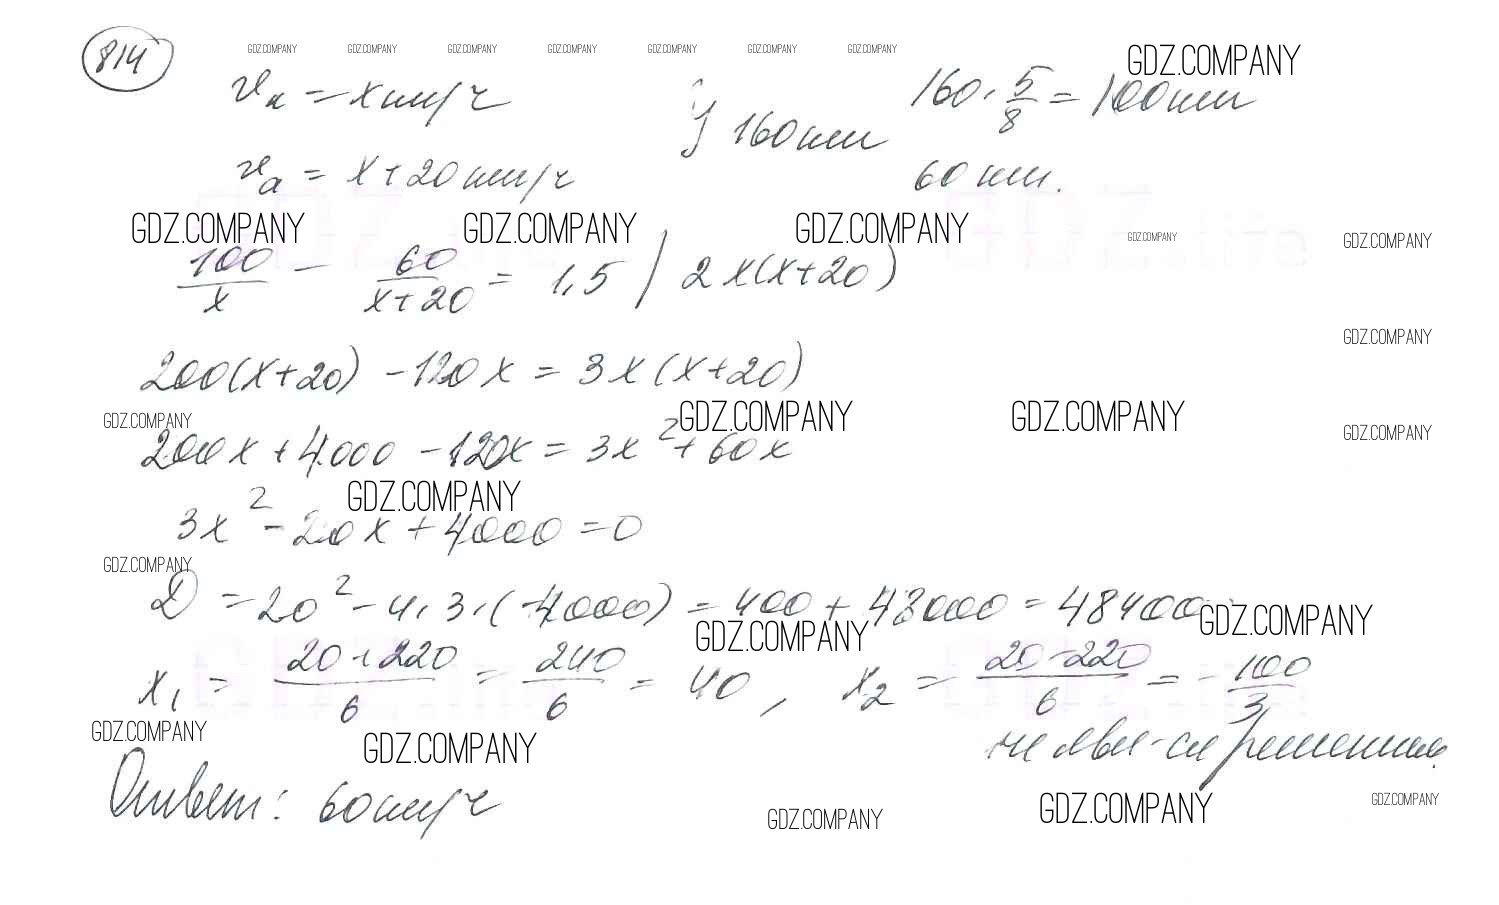 814
GDZ.COMPANY GDZ.COMPANY GDZ.COMPANY GDZ.COMPANY GDZ.COMPANY GDZ.COMPANY GDZ.COMPANY GDZ.COMPANY
= x км/ч 160 км 160 · 5/8 = 100 км
vа = x + 20 км/ч 60 км.
GDZ.COMPANY GDZ.COMPANY GDZ.COMPANY GDZ.COMPANY GDZ.COMPANY
100/x - 60/(x+20) = 1,5 | 2x(x+20)
GDZ.COMPANY
200(x+20) - 120x = 3x(x+20)
GDZ.COMPANY GDZ.COMPANY GDZ.COMPANY GDZ.COMPANY
200x + 4000 - 120x = 3x² + 60x
GDZ.COMPANY
3x² - 20x + 4000 = 0
GDZ.COMPANY
D = 20² - 4·3·(-4000) = 400 + 48000 = 48400
GDZ.COMPANY GDZ.COMPANY
x₁ = (20+220)/6 = 240/6 = 40, x₂ = (20-220)/6 = -100/3
GDZ.COMPANY GDZ.COMPANY
не явл-ся решением.
Ответ: 60 км/ч
GDZ.COMPANY GDZ.COMPANY GDZ.COMPANY